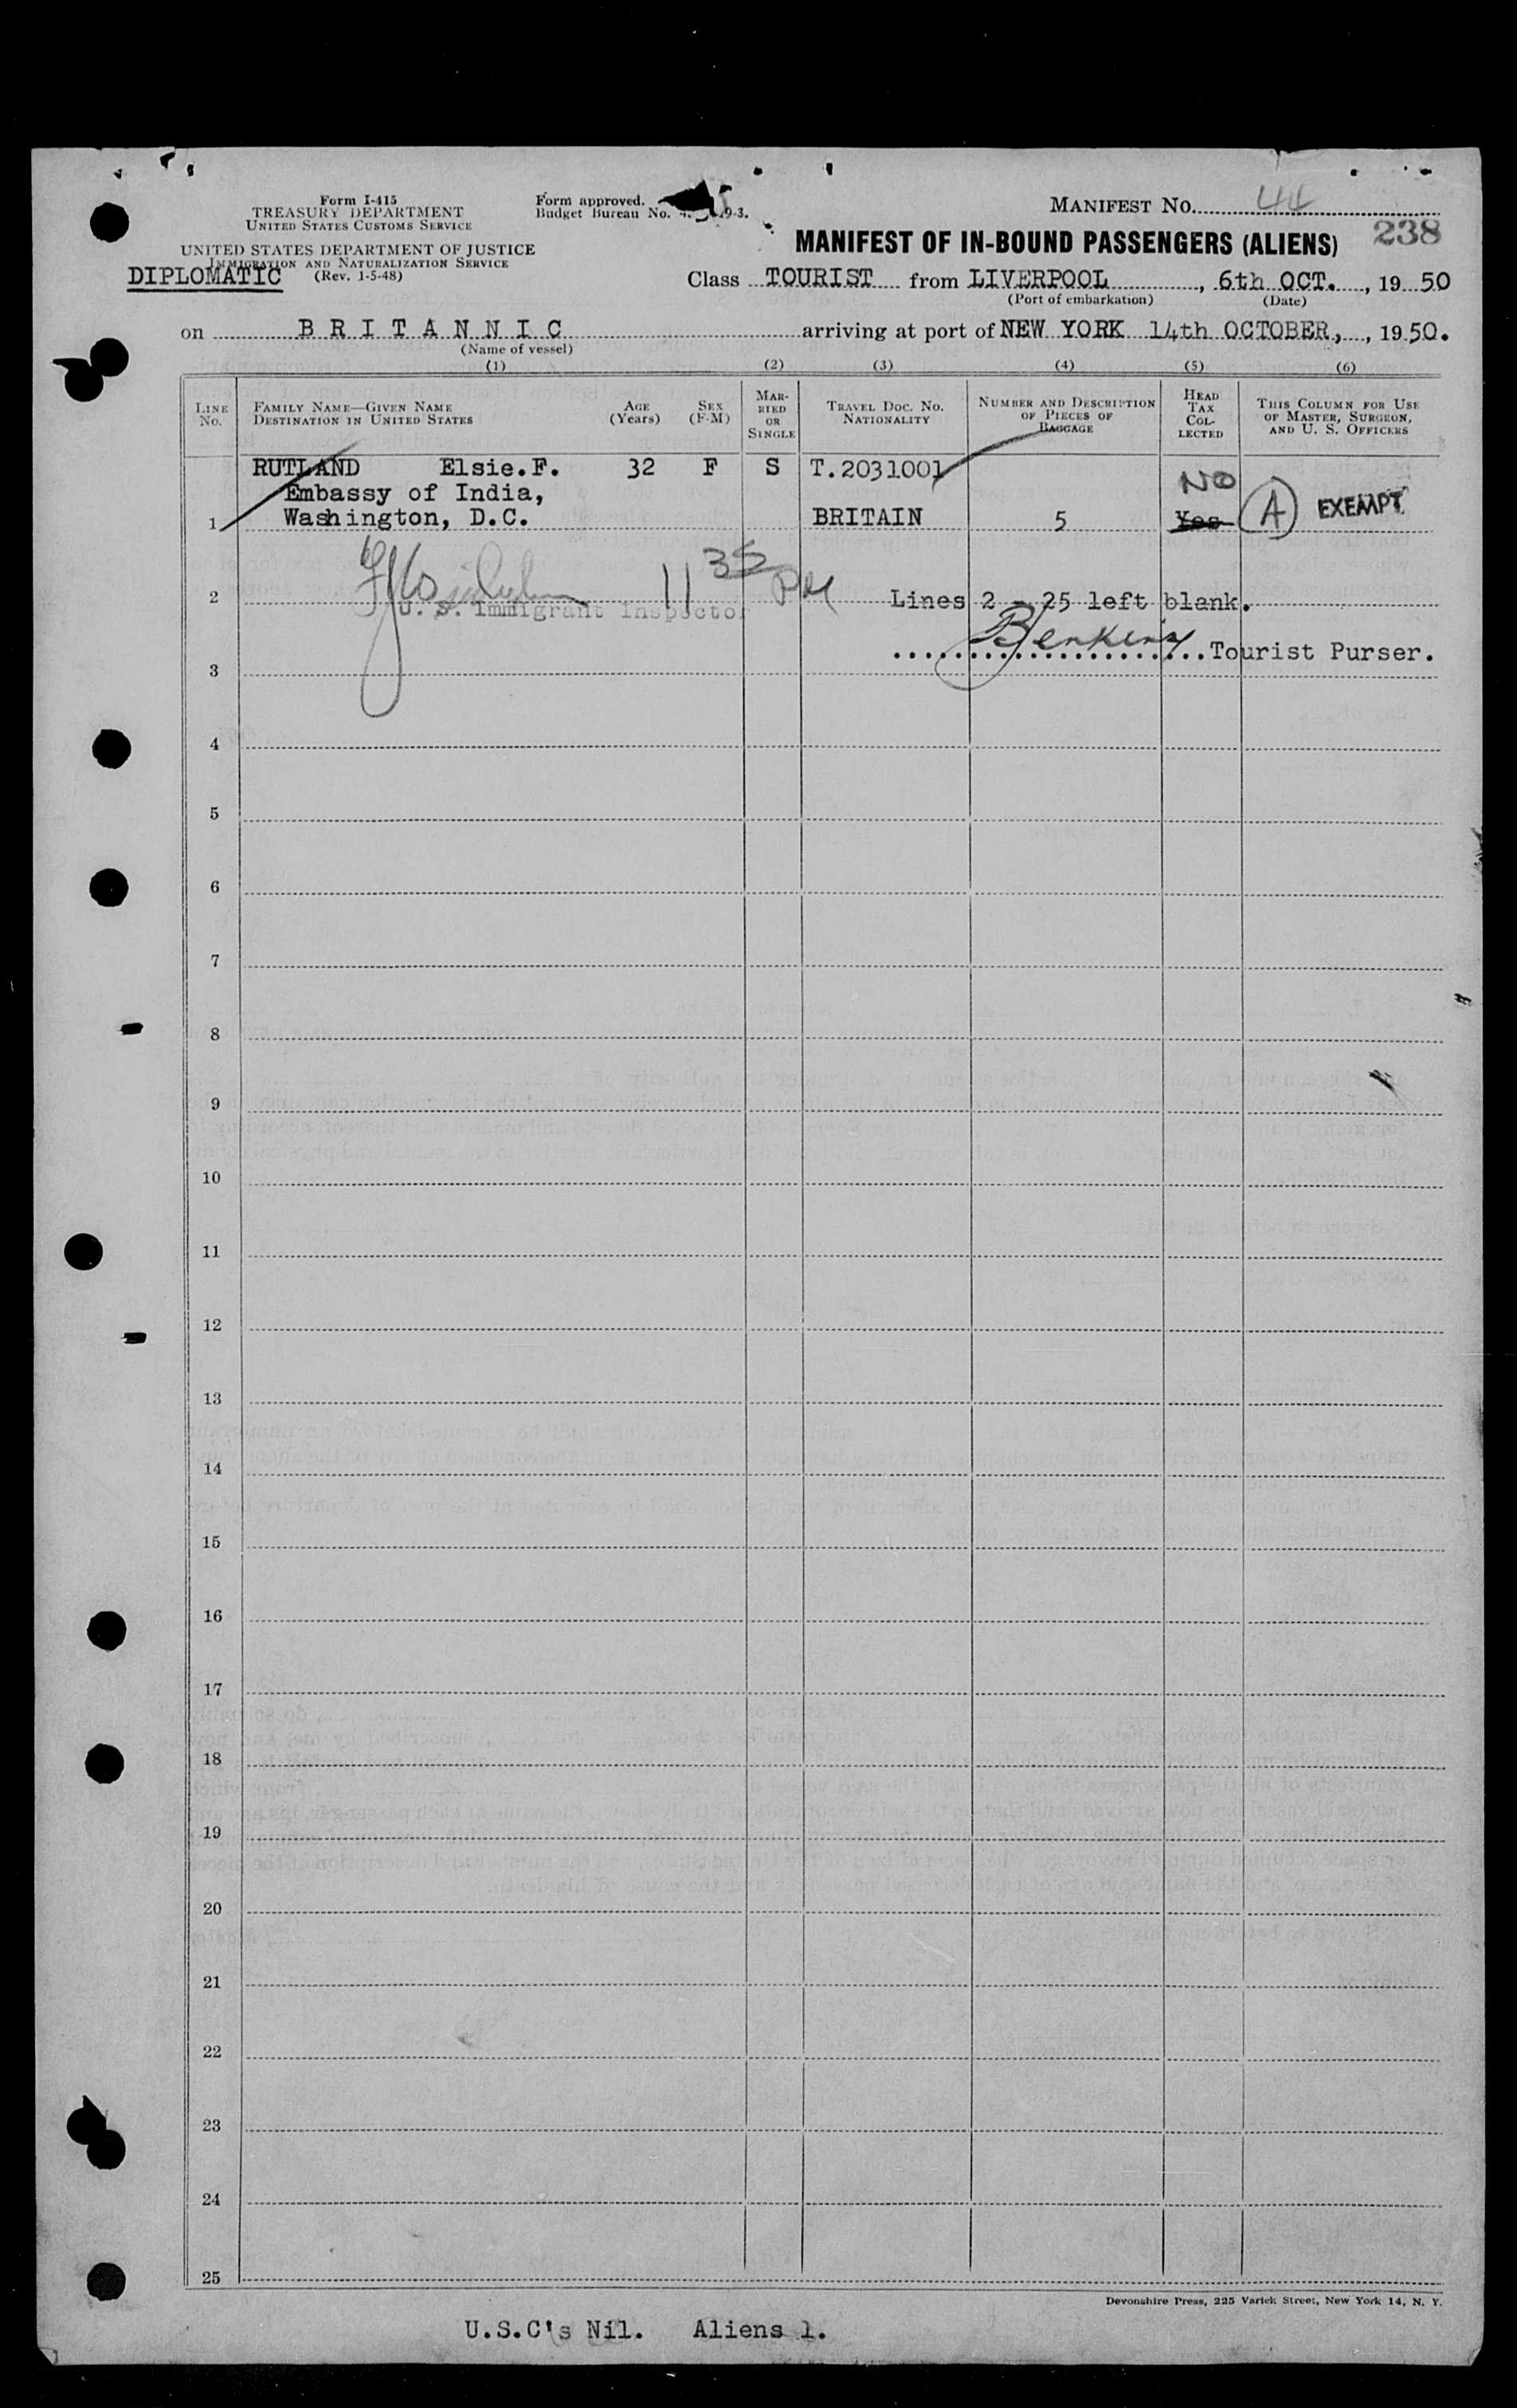 Form I-415
TREASURY DEPARTMENT
UNITED STATES CUSTOMS SERVICE
UNITED STATES DEPARTMENT OF JUSTICE
IMMIGRATION AND NATURALIZATION SERVICE
(Rev. 1-5-48)
DIPLOMATIC
Form approved.
Budget Bureau No.
MANIFEST No. 44
238
MANIFEST OF IN-BOUND PASSENGERS (ALIENS)
Class TOURIST from LIVERPOOL, 6th OCT., 19 50
(Port of embarkation) (Date)
on BRITANNIC arriving at port of NEW YORK 14th OCTOBER, , 19 50.
(Name of vessel)
(1) (2) (3) (4) (5) (6)
LINE No.
FAMILY NAME—GIVEN NAME
DESTINATION IN UNITED STATES
AGE (Years)
SEX (F-M)
MARRIED OR SINGLE
TRAVEL DOC. NO. NATIONALITY
NUMBER AND DESCRIPTION OF PIECES OF BAGGAGE
HEAD TAX COLLECTED
THIS COLUMN FOR USE OF MASTER, SURGEON, AND U. S. OFFICERS
RUTLAND Elsie.F. 32 F S T.2031001
Embassy of India, NO
1 Washington, D.C. BRITAIN 5 Yes A EXEMPT
11 35 PM
2 U. S. Immigrant Inspector Lines 2 - 25 left blank.
3 Tourist Purser.
4
5
6
7
8
9
10
11
12
13
14
15
16
17
18
19
20
21
22
23
24
25
Devonshire Press, 225 Varick Street, New York 14, N. Y.
U.S.C's Nil. Aliens 1.